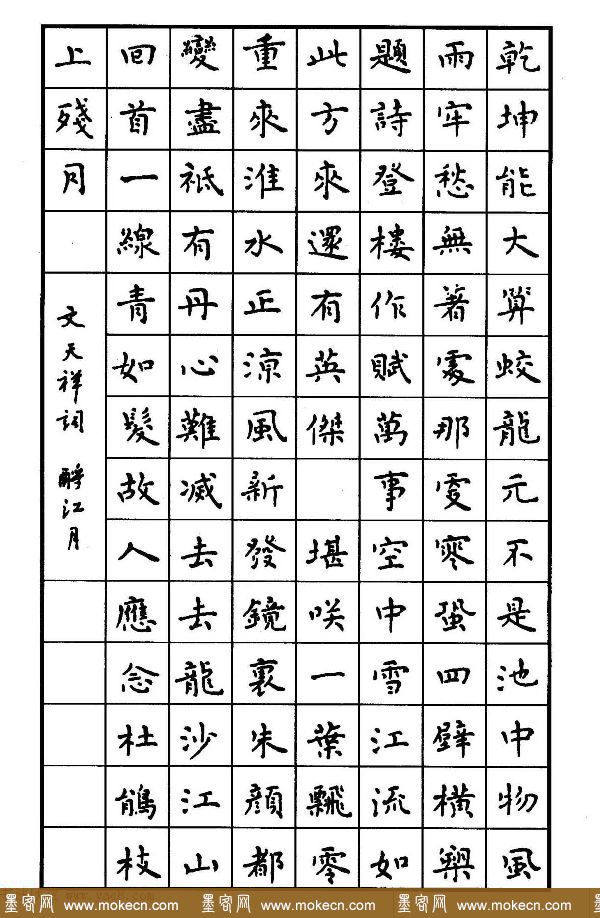 乾坤能大算蛟龍元不是池中物風
雨牢愁無著處那更寒蛩四壁橫槊
題詩登樓作賦萬事空中雪江流如
此方來還有英傑 堪咲一葉飄零
重來淮水正涼風新發鏡裏朱顏都
變盡祗有丹心難滅去去龍沙江山
回首一線青如髮故人應念杜鵑枝
上殘月
文天祥詞 酹江月
墨客网 www.mokecn.com 墨客网 www.mokecn.com 墨客网 www.mokecn.com 墨客网 www.mokecn.com